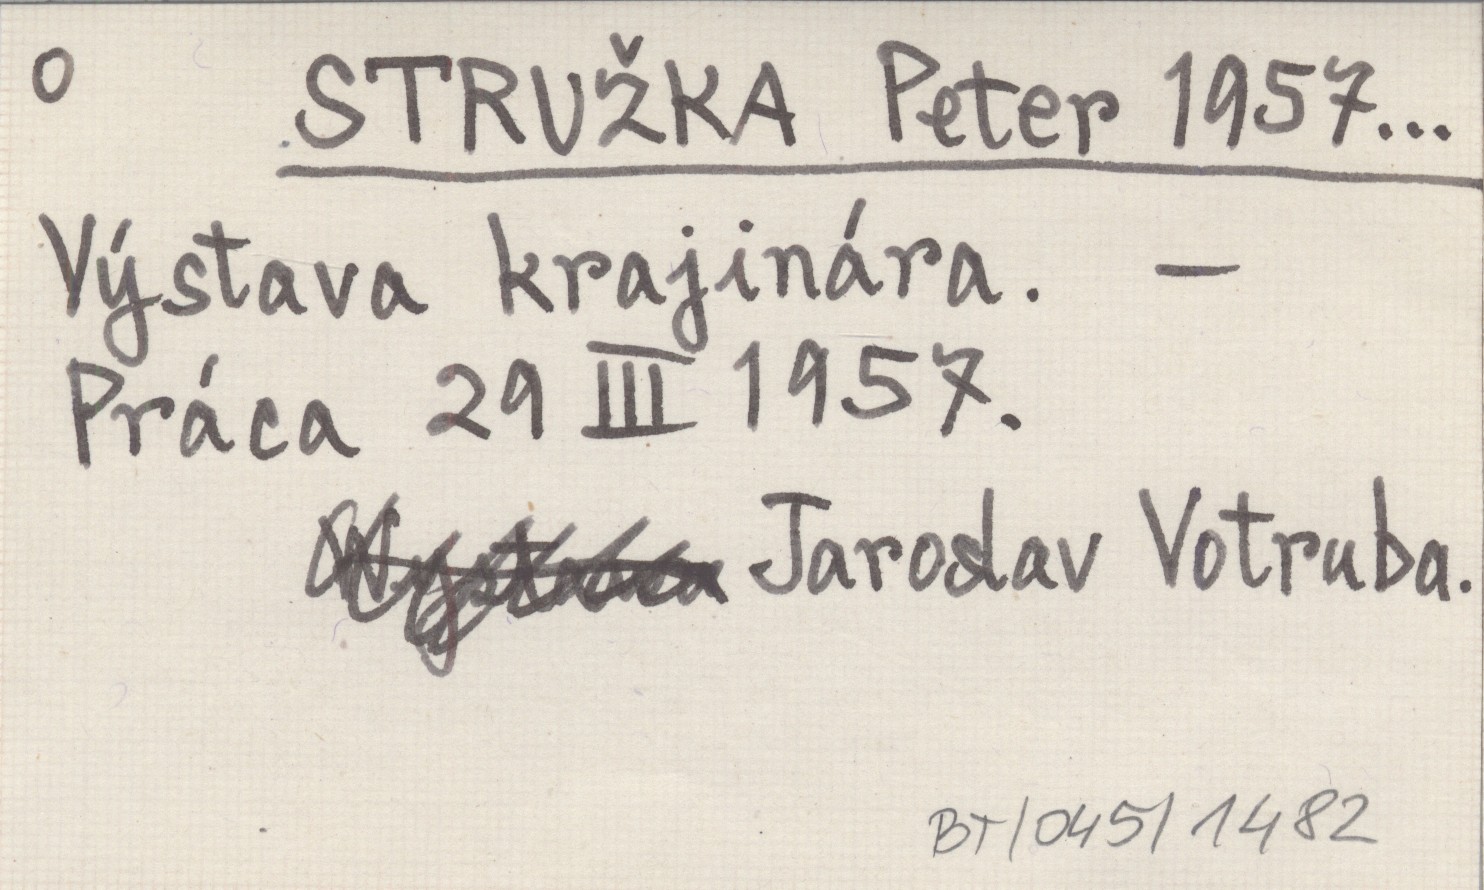 o STRUŽKA Peter 1957...
Výstava krajinára. —
Práca 29 III 1957.
Jaroslav Votruba.
BT/045/1482